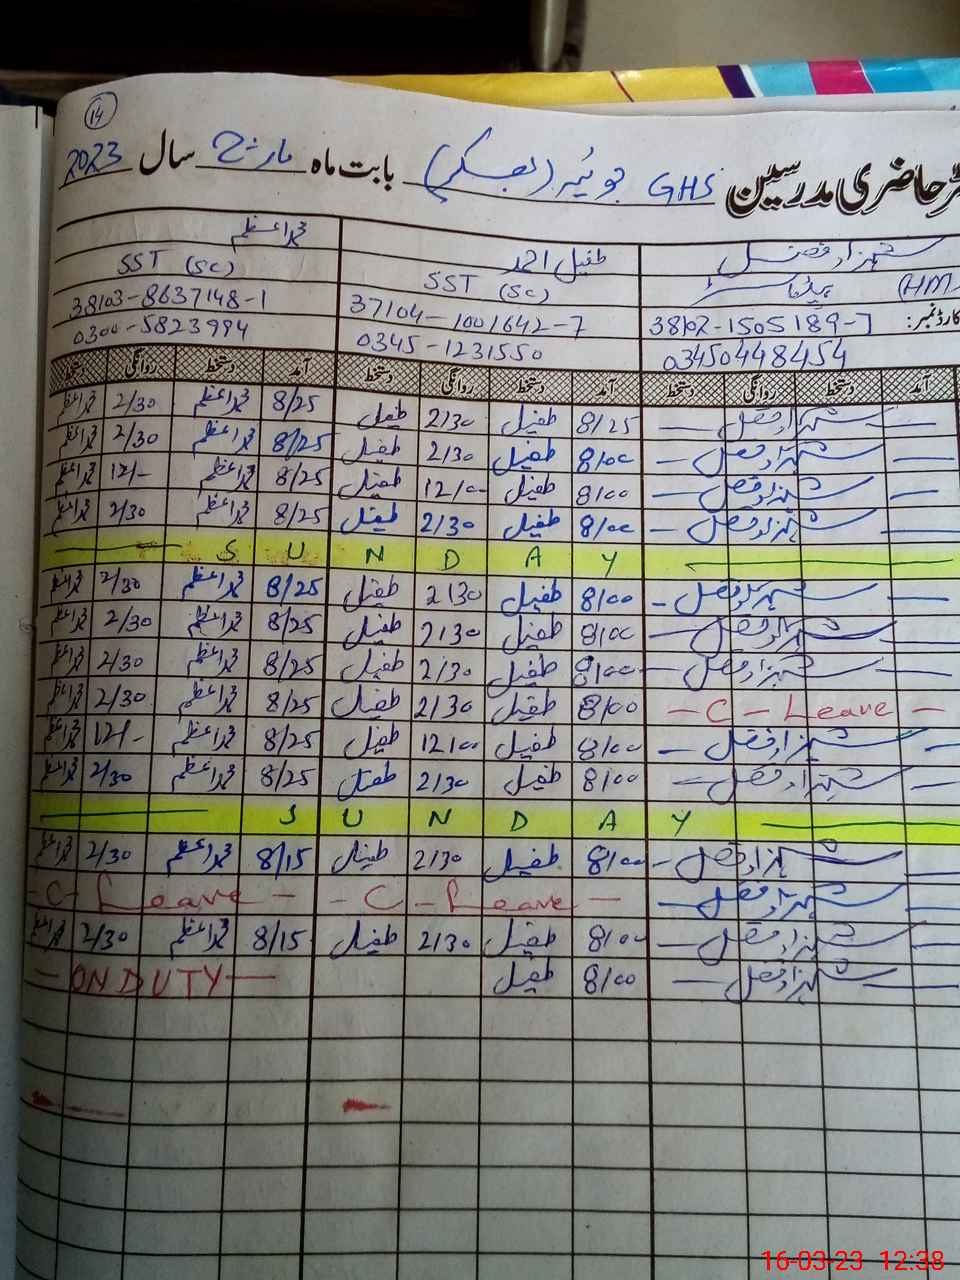 14
رجسٹر حاضری مدرسین GHS جوئیر (بھسکر) بابت ماہ مارچ سال 2023
شہزاد فضل طفیل احمد محمد اعظم
(HM) ہیڈ ماسٹر SST (SC) SST (SC)
کارڈ نمبر: 38102-1505189-7 37104-1001642-7 38103-8637148-1
03450448454 0345-1231550 0300-5823994
آمد دستخط روانگی دستخط آمد دستخط روانگی دستخط آمد دستخط روانگی دستخط
شہزاد فضل 8/25 طفیل 2/30 طفیل 8/25 محمد اعظم 2/30 محمد اعظم
شہزاد فضل 8/00 طفیل 2/30 طفیل 8/25 محمد اعظم 2/30 محمد اعظم
شہزاد فضل 8/00 طفیل 12/00 طفیل 8/25 محمد اعظم 12/- محمد اعظم
شہزاد فضل 8/00 طفیل 2/30 طفیل 8/25 محمد اعظم 2/30 محمد اعظم
SUNDAY
شہزاد فضل 8/00 طفیل 2/30 طفیل 8/25 محمد اعظم 2/30 محمد اعظم
شہزاد فضل 8/00 طفیل 2/30 طفیل 8/25 محمد اعظم 2/30 محمد اعظم
شہزاد فضل 8/00 طفیل 2/30 طفیل 8/25 محمد اعظم 2/30 محمد اعظم
- C - Leave - 8/00 طفیل 2/30 طفیل 8/25 محمد اعظم 2/30 محمد اعظم
شہزاد فضل 8/00 طفیل 12/00 طفیل 8/25 محمد اعظم 12/- محمد اعظم
شہزاد فضل 8/00 طفیل 2/30 طفیل 8/25 محمد اعظم 2/30 محمد اعظم
SUNDAY
شہزاد فضل 8/00 طفیل 2/30 طفیل 8/15 محمد اعظم 2/30 محمد اعظم
شہزاد فضل - C - Leave - - C - Leave -
شہزاد فضل 8/00 طفیل 2/30 طفیل 8/15 محمد اعظم 2/30 محمد اعظم
شہزاد فضل 8/00 طفیل - ON DUTY -
16-03-23 12:38